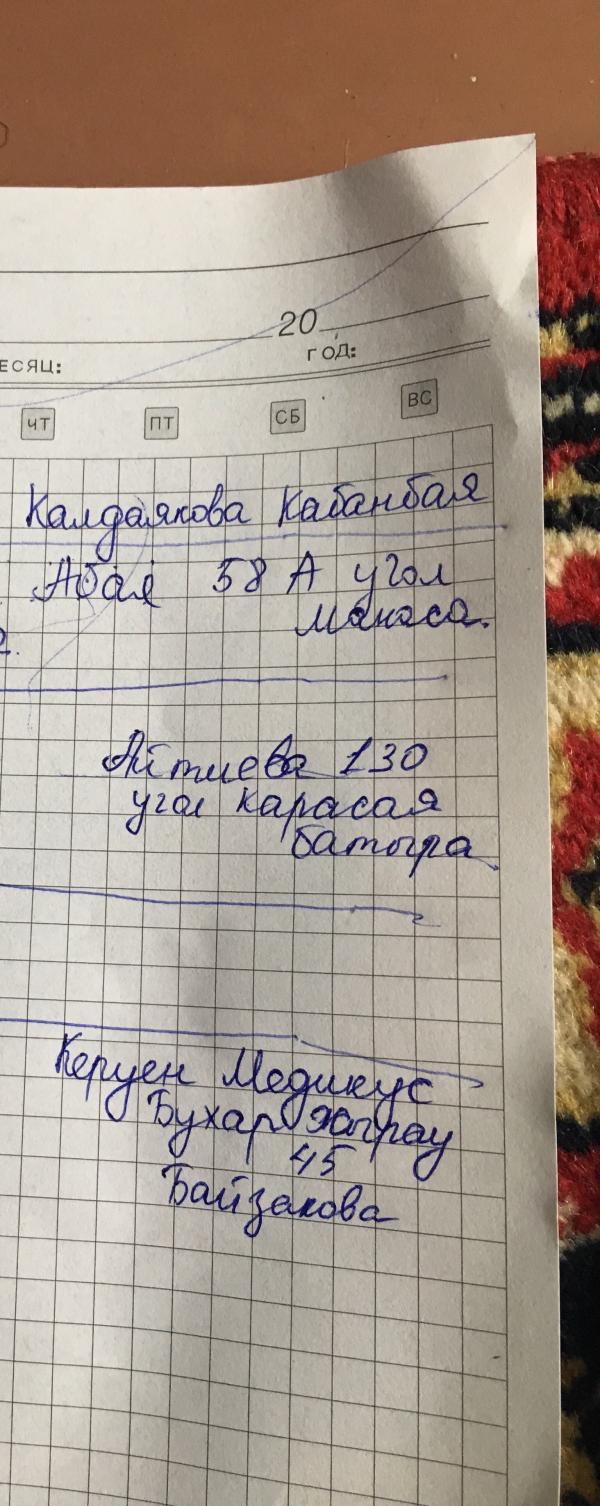 20
ЕСЯЦ: ГОД:
ЧТ ПТ СБ ВС
Калдаякова Кабанбая
Абая 58 А угол
Манаса.
Айтиева 130
угол Карасая
батыра
Керуен Медикус
Бухар Жырау
45
Байзакова